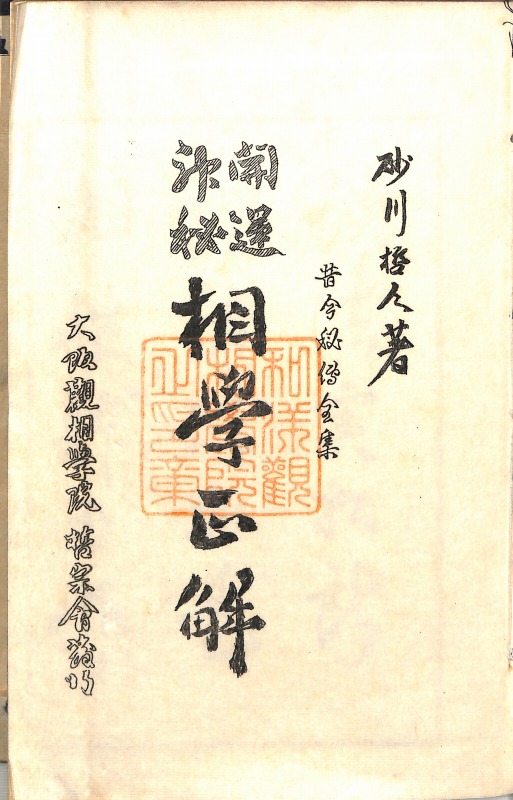 砂川哲人著
昔今秘傳全集
開運
秘
相學正解
大阪觀相學院 哲宗會發行